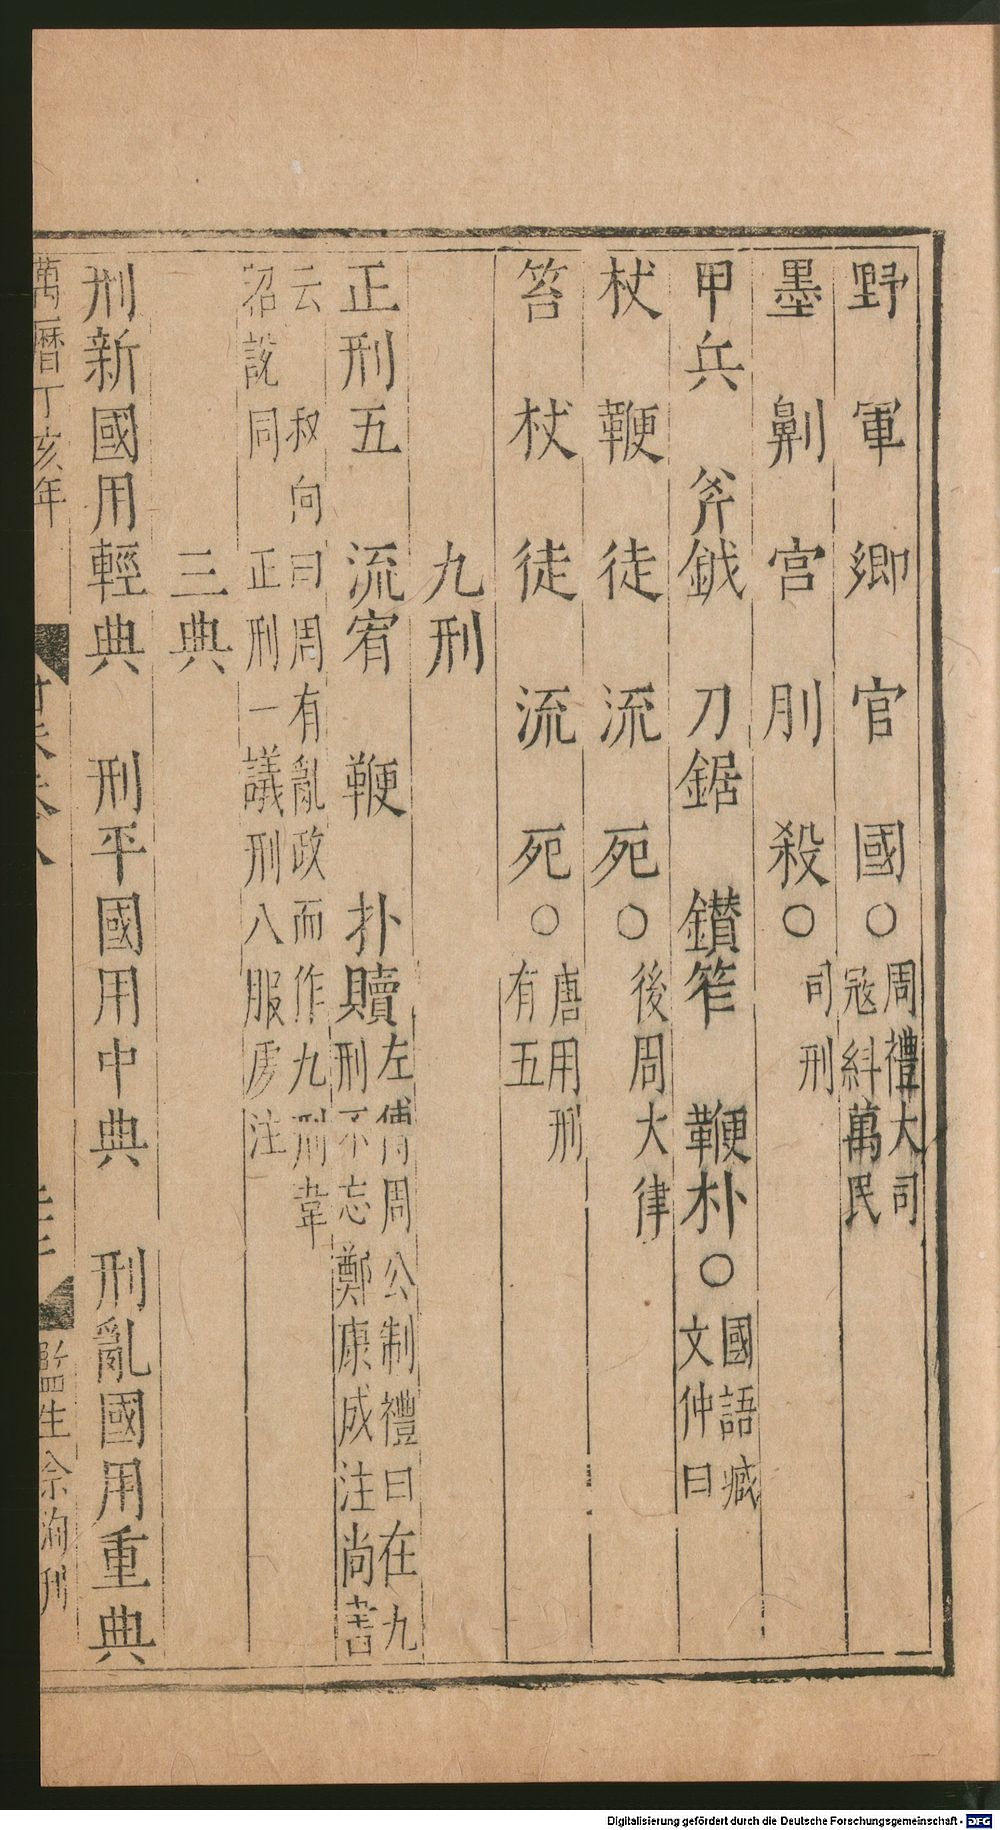 野 軍 卿 官 國 ○ 周禮大司
寇糾萬民
墨 劓 宮 刖 殺 ○ 司刑
甲兵 斧鉞 刀鋸 鑚笮 鞭朴 ○ 國語臧
文仲曰
杖 鞭 徒 流 死 ○ 後周大律
笞 杖 徒 流 死 ○ 唐用刑
有五
九刑
正刑五 流宥 鞭 扑 贖 左傳周公制禮曰在九
刑不忘鄭康成注尚書
云 叔向曰周有亂政而作九刑韋
昭說同 正刑一議刑八服虔注
三典
刑新國用輕典 刑平國用中典 刑亂國用重典
萬曆丁亥年
監生余洵刊
Digitalisierung gefördert durch die Deutsche Forschungsgemeinschaft - DFG